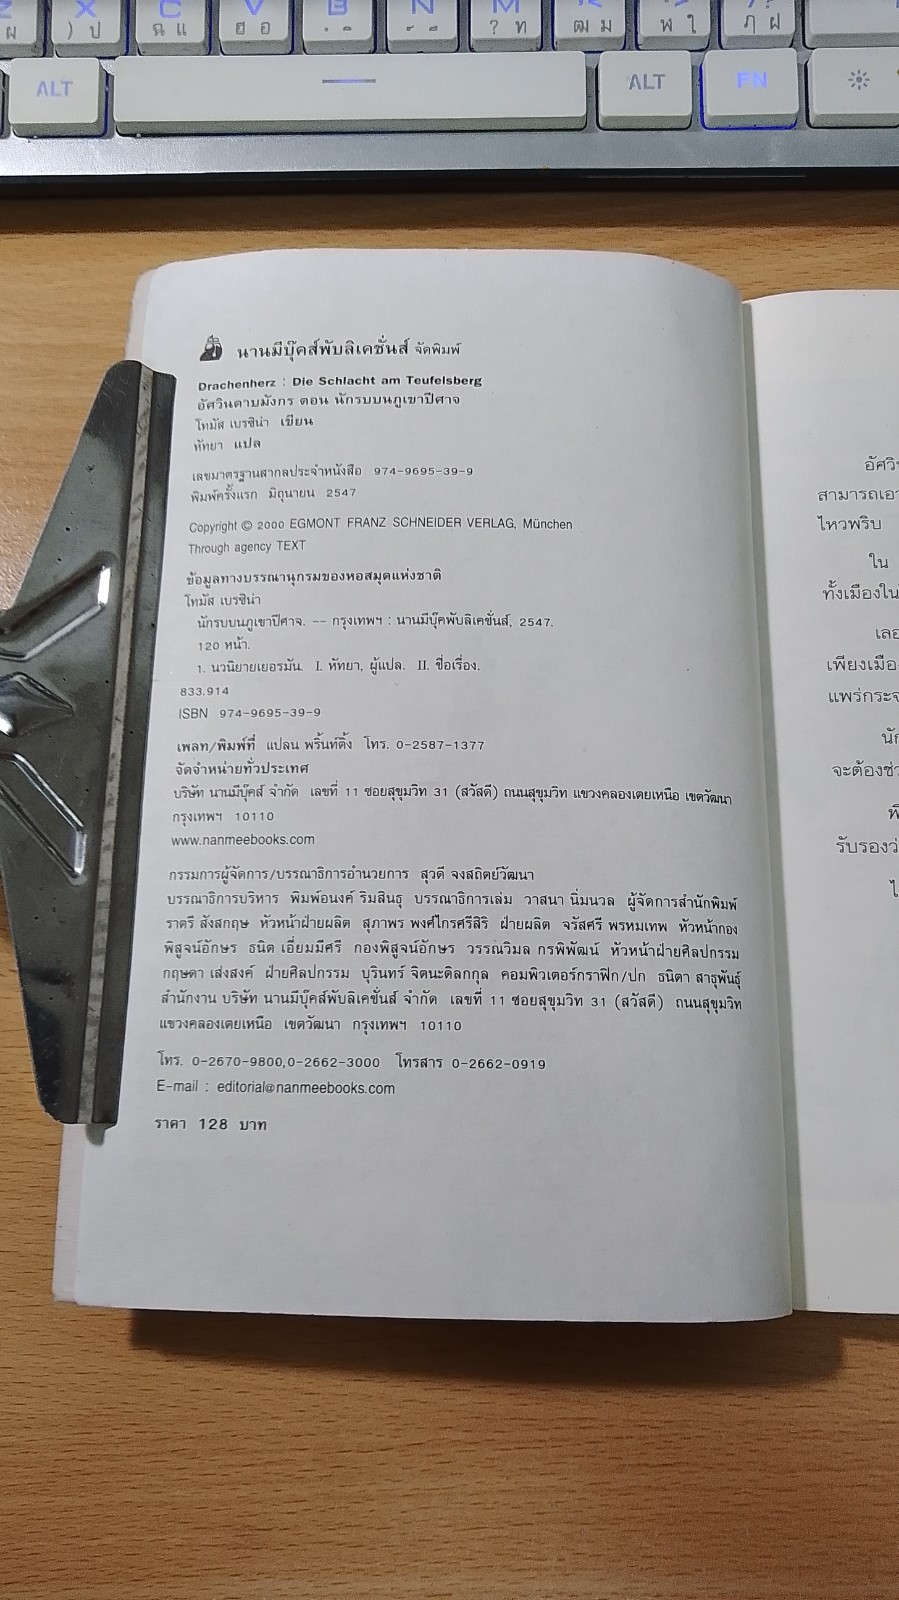 X C V B N M
ผ ) ป ฉ แ ฮ อ ? ท ฒ ม พ ใ ฦ ฝ
ALT ALT FN
นานมีบุ๊คส์พับลิเคชั่นส์ จัดพิมพ์
Drachenherz : Die Schlacht am Teufelsberg
อัศวินดาบมังกร ตอน นักรบบนภูเขาปีศาจ
โทมัส เบรซิน่า เขียน
หัทยา แปล
เลขมาตรฐานสากลประจำหนังสือ 974-9695-39-9
พิมพ์ครั้งแรก มิถุนายน 2547
Copyright © 2000 EGMONT FRANZ SCHNEIDER VERLAG, München
Through agency TEXT
ข้อมูลทางบรรณานุกรมของหอสมุดแห่งชาติ
โทมัส เบรซิน่า
นักรบบนภูเขาปีศาจ. -- กรุงเทพฯ : นานมีบุ๊คพับลิเคชั่นส์, 2547.
120 หน้า.
1. นวนิยายเยอรมัน. I. หัทยา, ผู้แปล. II. ชื่อเรื่อง.
833.914
ISBN 974-9695-39-9
เพลท/พิมพ์ที่ แปลน พริ้นท์ติ้ง โทร. 0-2587-1377
จัดจำหน่ายทั่วประเทศ
บริษัท นานมีบุ๊คส์ จำกัด เลขที่ 11 ซอยสุขุมวิท 31 (สวัสดี) ถนนสุขุมวิท แขวงคลองเตยเหนือ เขตวัฒนา
กรุงเทพฯ 10110
www.nanmeebooks.com
กรรมการผู้จัดการ/บรรณาธิการอำนวยการ สุวดี จงสถิตย์วัฒนา
บรรณาธิการบริหาร พิมพ์อนงค์ ริมสินธุ บรรณาธิการเล่ม วาสนา นิ่มนวล ผู้จัดการสำนักพิมพ์
ราตรี สังสกฤษ หัวหน้าฝ่ายผลิต สุภาพร พงศ์ไกรศรีสิริ ฝ่ายผลิต จรัสศรี พรหมเทพ หัวหน้ากอง
พิสูจน์อักษร ธนิต เอี่ยมมีศรี กองพิสูจน์อักษร วรรณวิมล กรพิพัฒน์ หัวหน้าฝ่ายศิลปกรรม
กฤษดา เส่งสงค์ ฝ่ายศิลปกรรม บุรินทร์ จิตนะดิลกกุล คอมพิวเตอร์กราฟิก/ปก ธนิตา สาธุพันธุ์
สำนักงาน บริษัท นานมีบุ๊คส์พับลิเคชั่นส์ จำกัด เลขที่ 11 ซอยสุขุมวิท 31 (สวัสดี) ถนนสุขุมวิท
แขวงคลองเตยเหนือ เขตวัฒนา กรุงเทพฯ 10110
โทร. 0-2670-9800,0-2662-3000 โทรสาร 0-2662-0919
E-mail : editorial@nanmeebooks.com
ราคา 128 บาท
อัศวิ
สามารถเอา
ไหวพริบ
ใน
ทั้งเมืองใน
เลอ
เพียงเมือ
แพร่กระจ
นัก
จะต้องช่ว
พี
รับรองว่
ไ